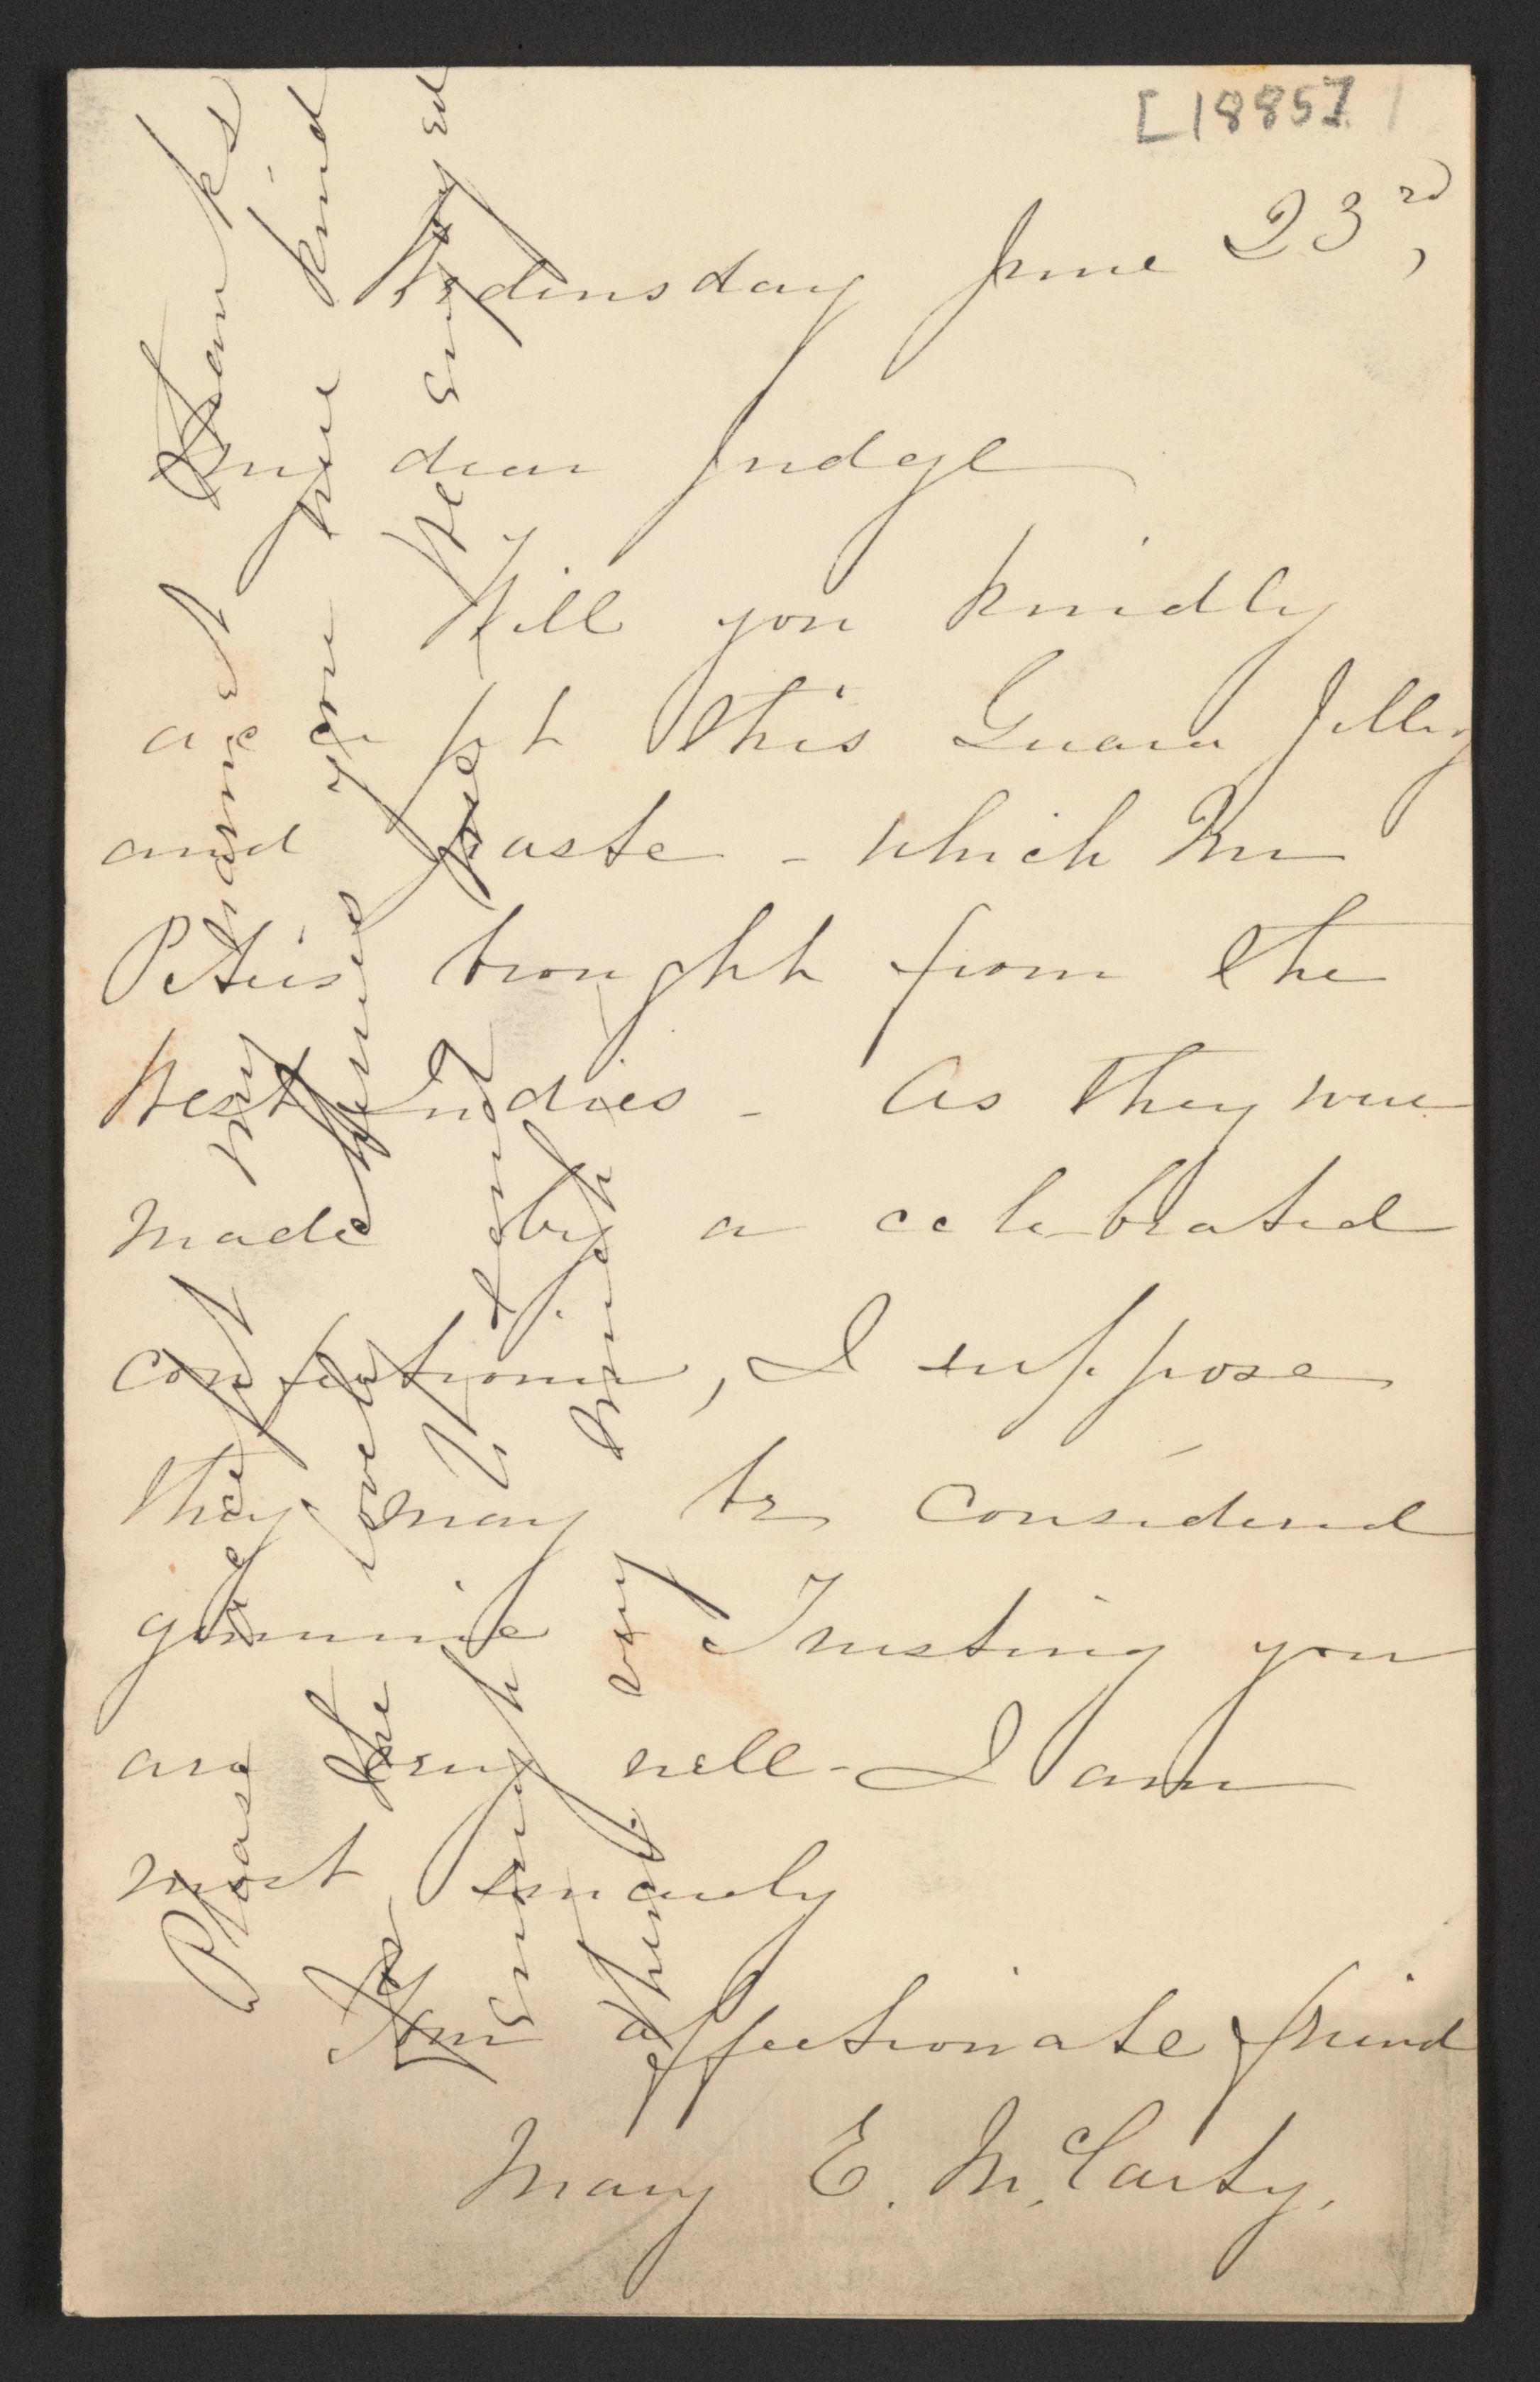 [1885]
Wednesday June 23rd,
My dear Judge
Will you kindly
accept this Guava Jelly
and paste - which Mr
Pettus brought from the
West Indies - As they were
made by a celebrated
confectioner, I suppose
they may be considered
genuine Trusting you
are very well - I am
most sincerely
Your affectionate friend
Mary E. McCarty.
Please accept my warmest thanks
for the lovely you were kind
enough to send We enjoyed
them very much